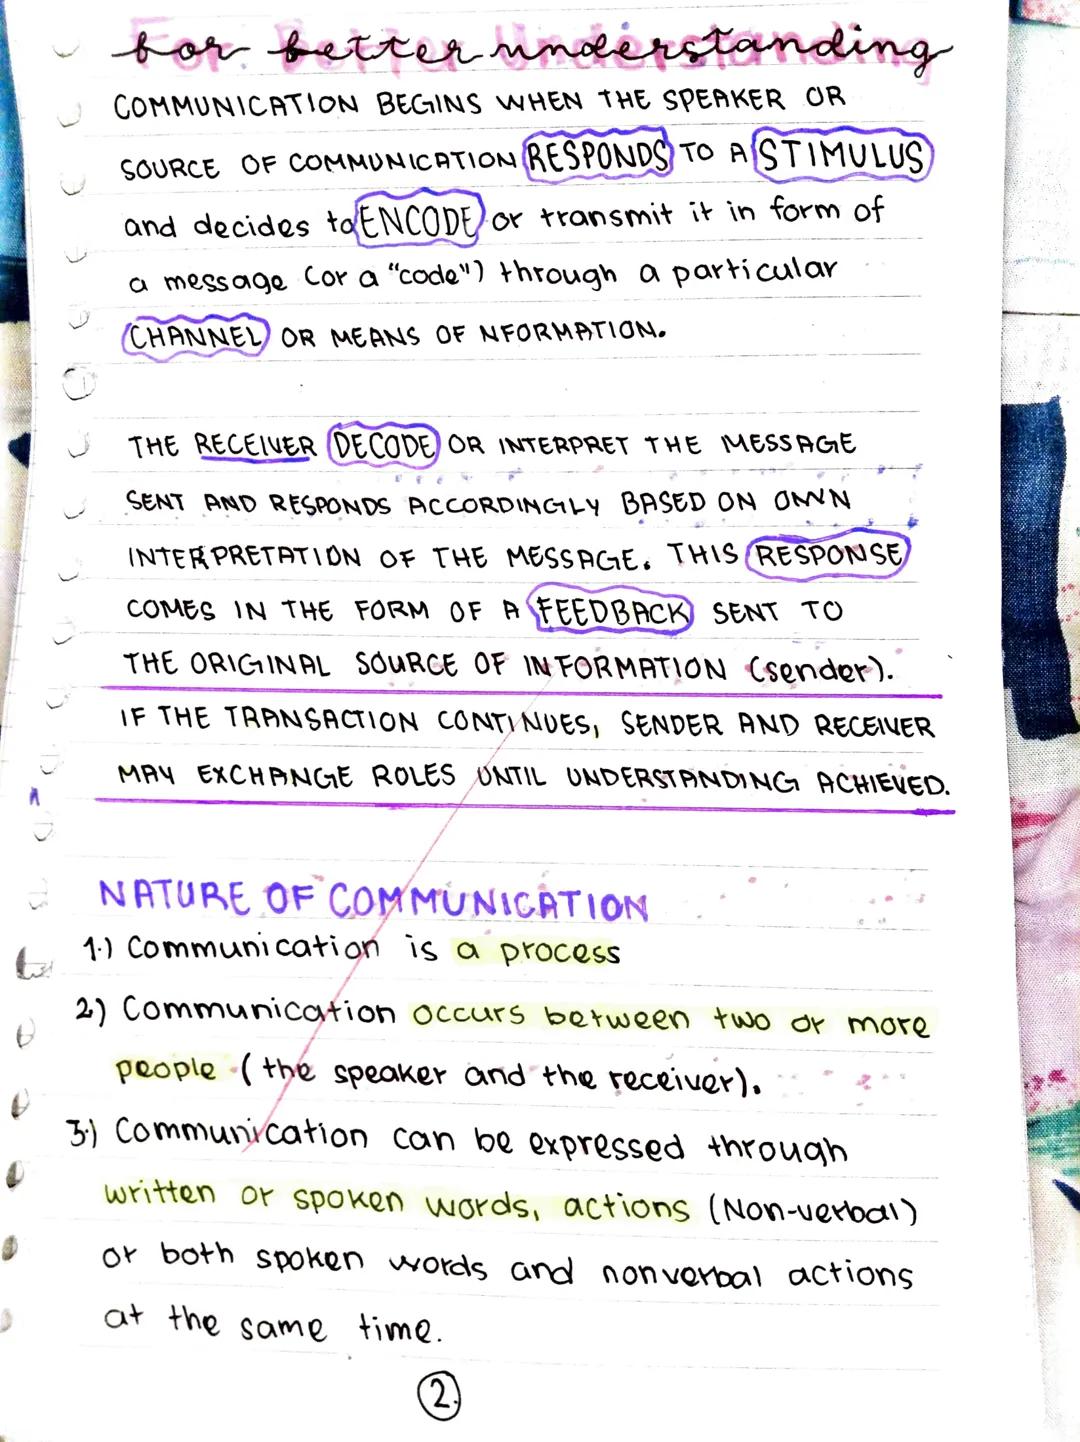 for better understanding
COMMUNICATION BEGINS WHEN THE SPEAKER OR
SOURCE OF COMMUNICATION RESPONDS TO A STIMULUS
and decides to ENCODE or transmit it in form of
a message (or a "code") through a particular
CHANNEL OR MEANS OF NFORMATION.
THE RECEIVER DECODE OR INTERPRET THE MESSAGE
SENT AND RESPONDS ACCORDINGLY BASED ON OWN
INTERPRETATION OF THE MESSAGE. THIS RESPONSE
COMES IN THE FORM OF A FEEDBACK SENT TO
THE ORIGINAL SOURCE OF INFORMATION (sender).
IF THE TRANSACTION CONTINUES, SENDER AND RECEIVER
MAY EXCHANGE ROLES UNTIL UNDERSTANDING ACHIEVED.
NATURE OF COMMUNICATION
1.) Communication is a process
2) Communication occurs between two or more
people (the speaker and the receiver).
3.) Communication can be expressed through
written or spoken words, actions (Non-verbal)
or both spoken words and nonverbal actions
at the same time.
2.